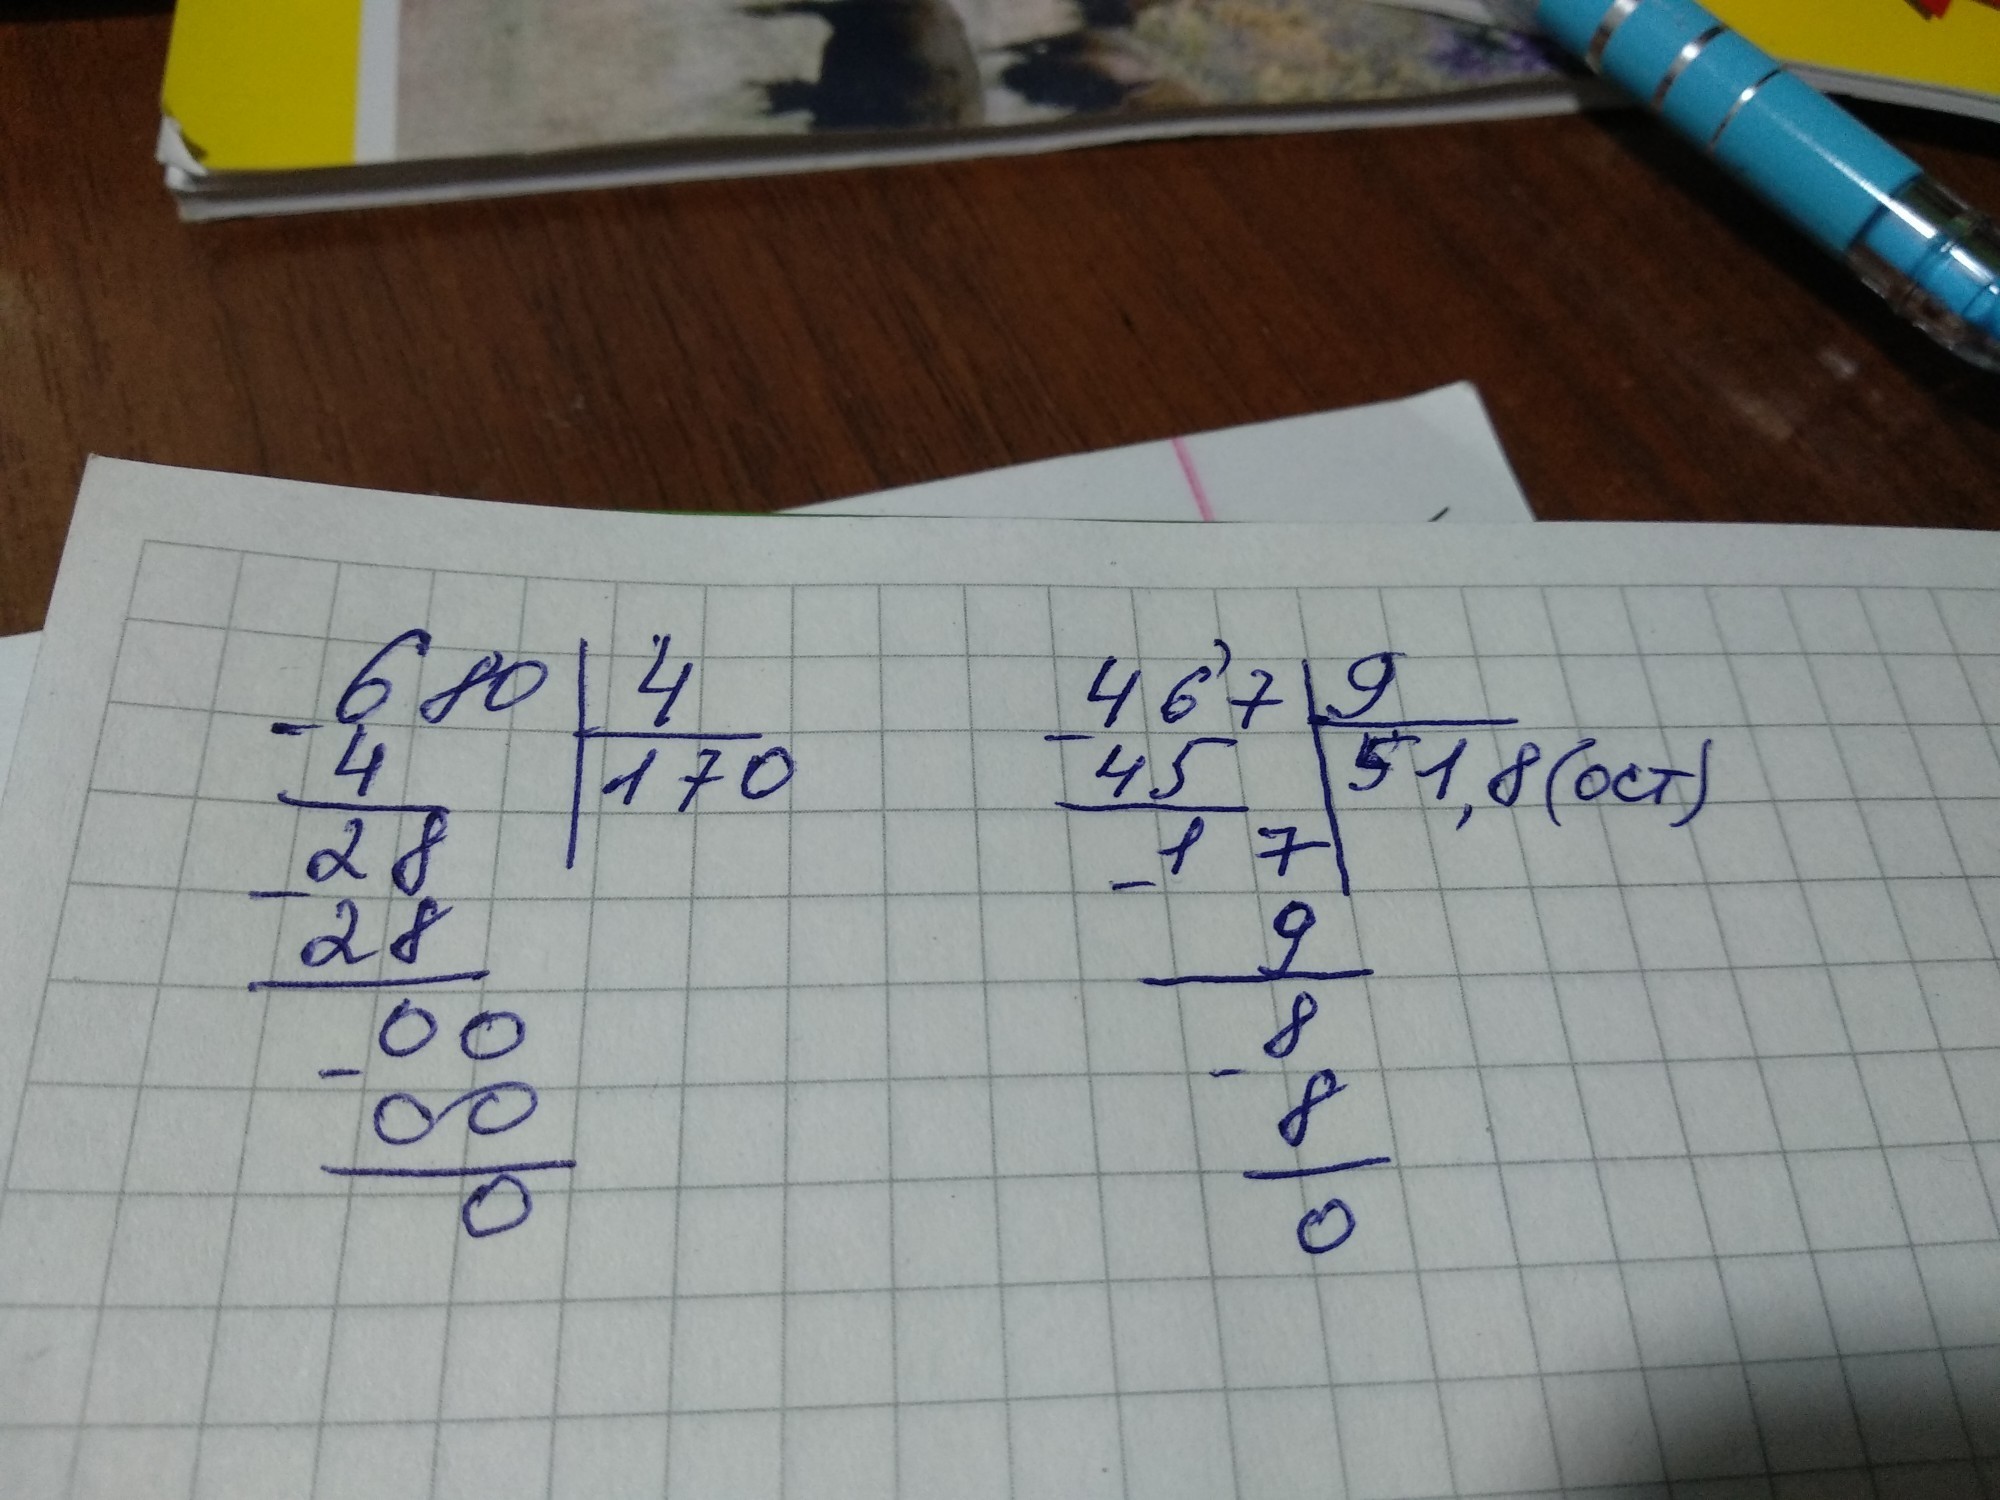 680 | 4
- 4 | 170
28
- 28
00
- 00
0
467 | 9
- 45 | 51,8(ост)
17
- 9
8
- 8
0